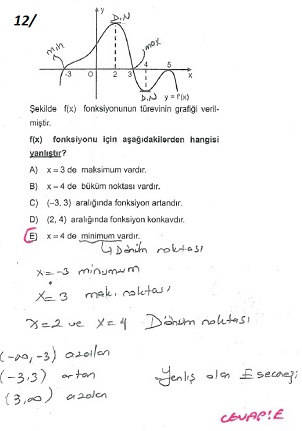 12/
y
D.N
min
max
-3 0 2 3 4 5 x
D.N y = f'(x)
Şekilde f(x) fonksiyonunun türevinin grafiği veril-
miştir.
f(x) fonksiyonu için aşağıdakilerden hangisi
yanlıştır?
A) x = 3 de maksimum vardır.
B) x = 4 de büküm noktası vardır.
C) (-3, 3) aralığında fonksiyon artandır.
D) (2, 4) aralığında fonksiyon konkavdır.
E) x = 4 de minimum vardır.
↳ Dönüm noktası
x = -3 minumum
x = 3 mak. noktası
x = 2 ve x = 4 Dönüm noktası
(-∞, -3) azalan
(-3, 3) artan Yanlış olan E seçeneği
(3, ∞) azalan
CEVAP: E